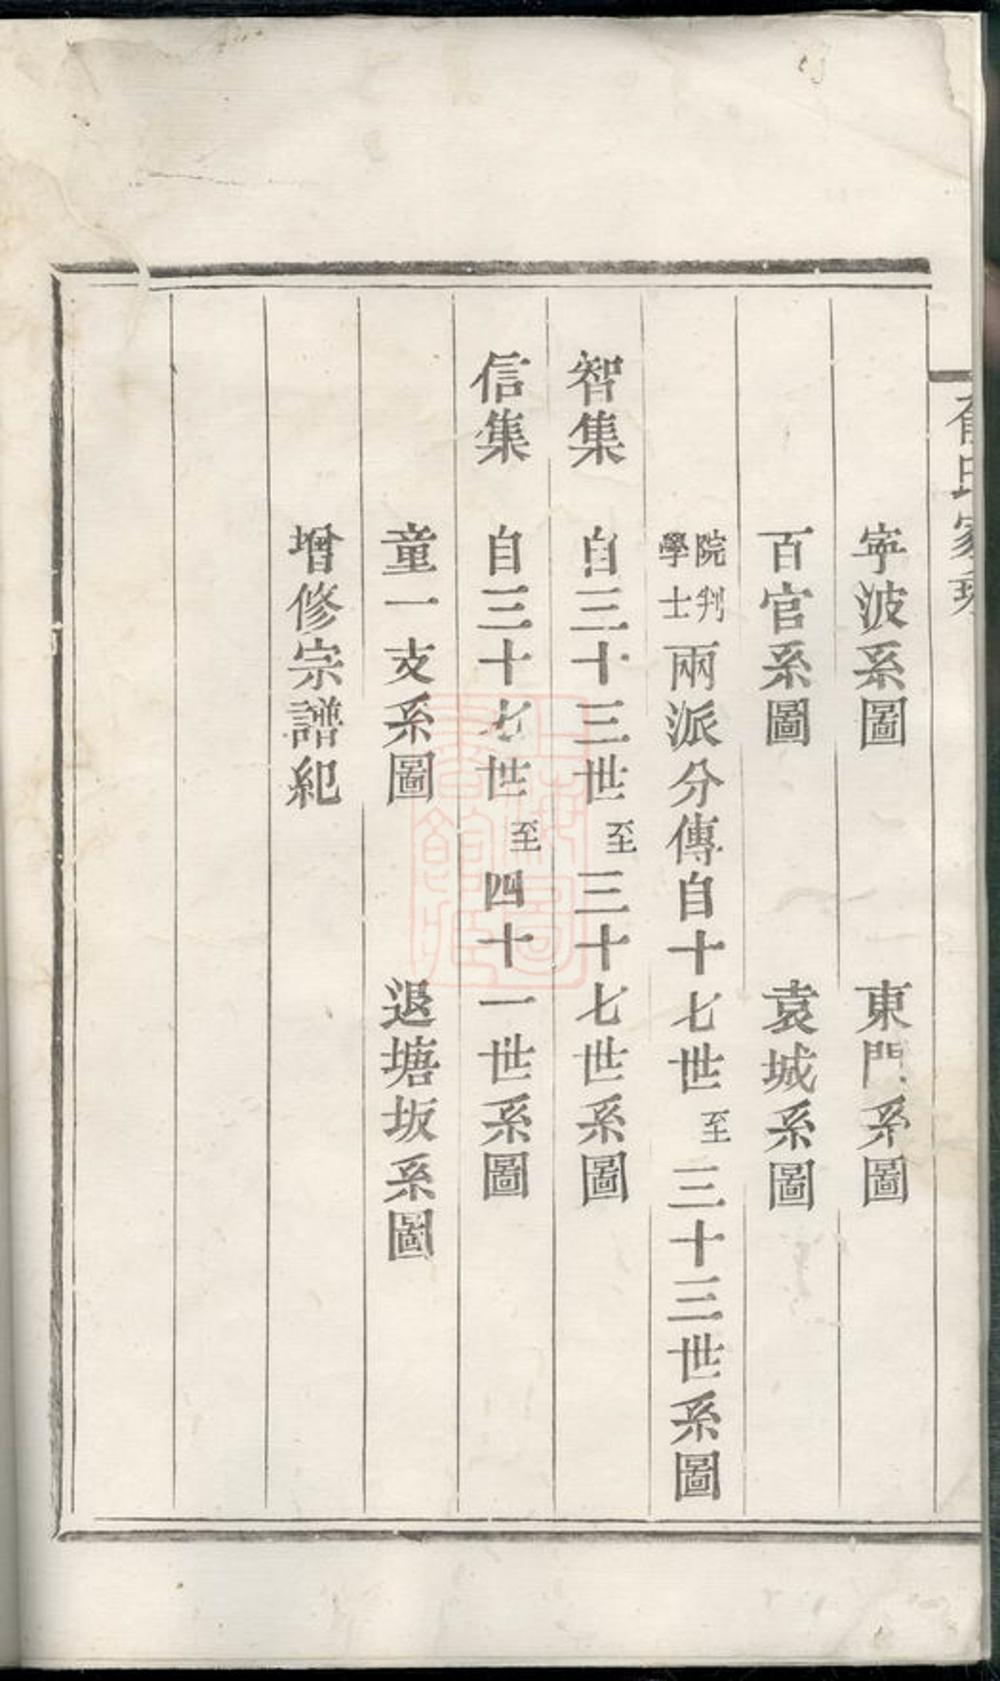 氏家乘
寕波系圖　東門系圖
百官系圖　袁城系圖
院判學士兩派分傳自十七世至三十三世系圖
智集　自三十三世至三十七世系圖
信集　自三十七世至四十一世系圖
童一支系圖　退塘坂系圖
增修宗譜紀